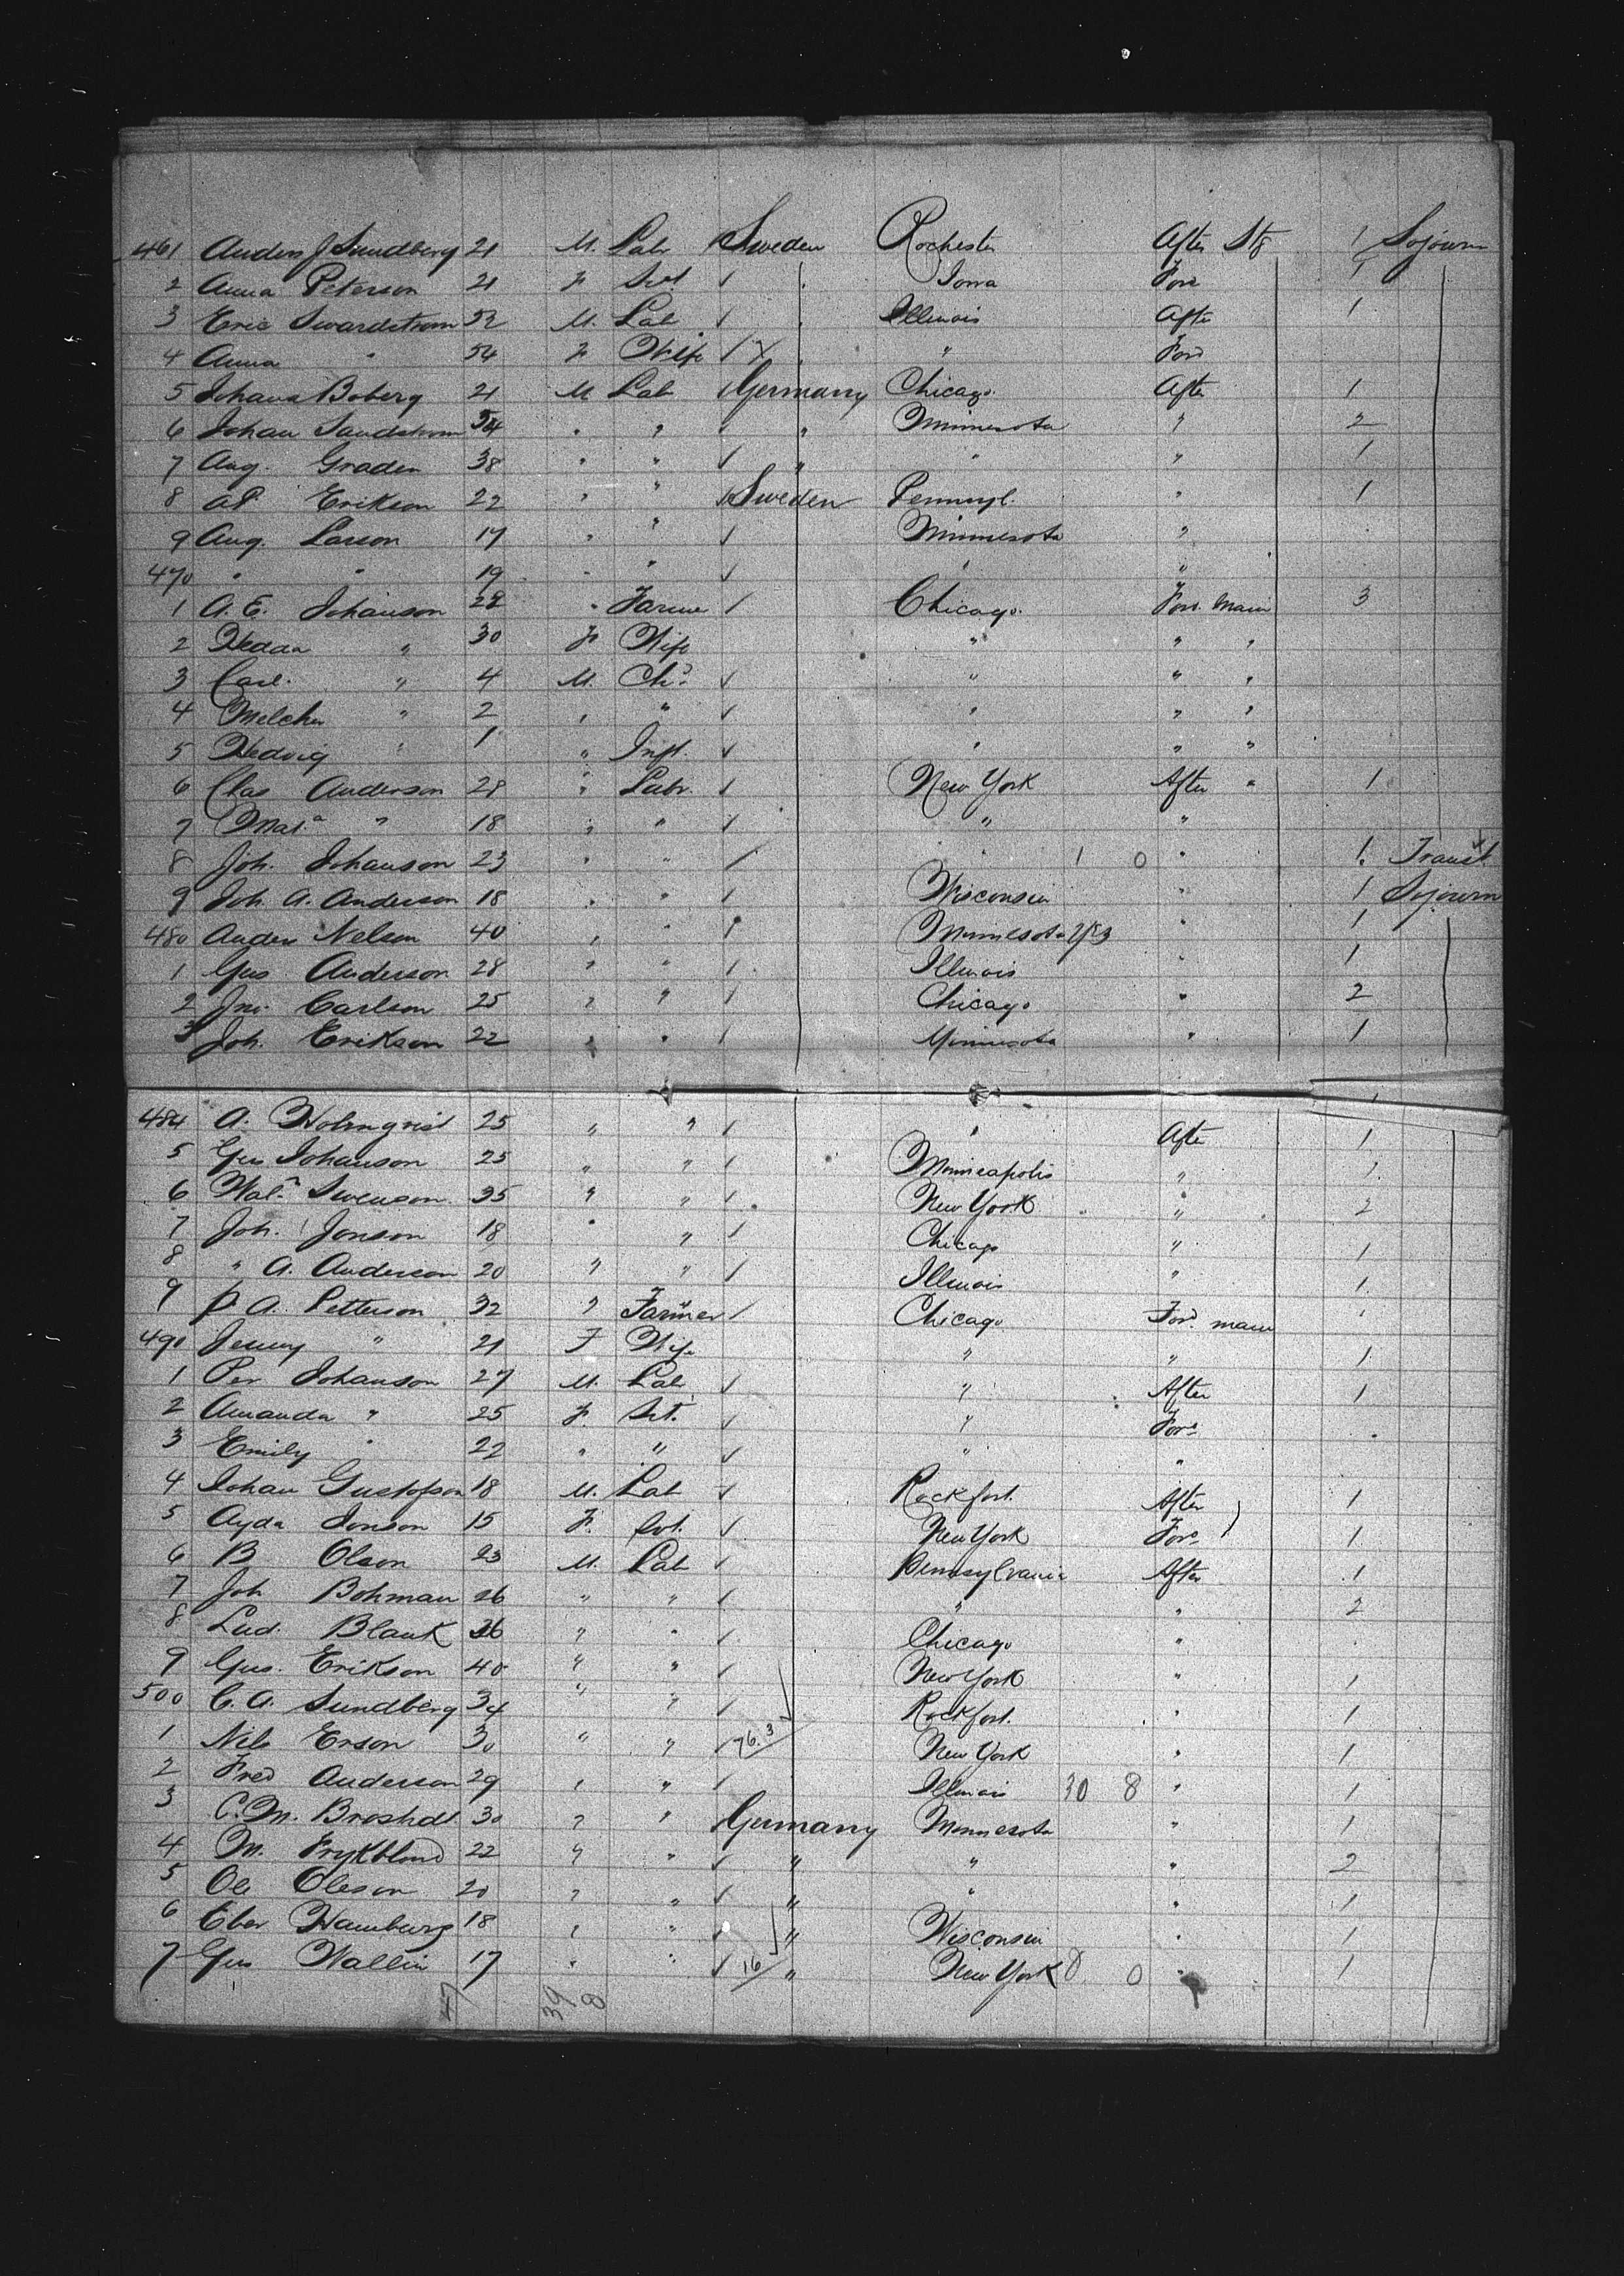 461 Anders J Sundberg 21 M. Lab Sweden Rochester After Stg 1 Sojourn
2 Anna Peterson 21 F Svt " Iowa Fore 1
3 Eric Swardstrom 52 M. Lab " Illinois After 1
4 Anna " 54 F Wife X " " Ford
5 Johana Boberg 21 M Lab Germany Chicago After 1
6 Johan Sandstrom 54 " " " Minnesota " 2
7 Aug. Graden 38 " " " " " 1
8 A.P. Erikson 22 " " Sweden Pennsyl. " 1
9 Aug. Larson 17 " " Minnesota "
470 " " 19 " " " "
1 A. E. Johanson 28 " Farmer Chicago Ford. Main 3
2 Hedda " 30 F Wife " " "
3 Carl " 4 M. Chd " " "
4 Melcher " 2 " " " " "
5 Hedvig " 1 " Inft. " " "
6 Clas Anderson 28 " Labr. New York After " 1
7 Mata " 18 " " " "
8 Joh. Johanson 23 " " " 1 0 " 1. Transt.
9 Joh. A. Anderson 18 " " Wisconsin " 1 Sojourn
480 Anders Nelson 40 " " Minnesota " 1
1 Gus Anderson 28 " " Illinois " 1
2 Jno. Carlson 25 " " Chicago " 2
3 Joh. Erikson 22 " " Minnesota " 1
484 A. Holmqvist 25 " " " After 1
5 Gus Johanson 25 " " Minneapolis " 1
6 Swenson 35 " " New York " 2
7 Joh. Jonson 18 " " Chicago " 1
8 " A. Anderson 20 " " Illinois " 1
9 P. A. Petterson 32 " Farmer Chicago Ford. main
490 Jenny " 21 F Wife " " 1
1 Per Johanson 27 M. Lab " After 1
2 Amanda " 25 F. Svt. " Fore
3 Emily " 22 " " " "
4 Johan Gustofson 18 M. Lab Rockford. After 1
5 Ayda Jonson 15 F. Svt. New York Fore 1
6 B Olson 23 M. Lab Pennsylvania After 1
7 Joh Bohman 26 " " " " 2
8 Lud. Blank 36 " " Chicago "
9 Gus. Erikson 40 " " New York " 1
500 C. A. Sundberg 34 " " Rockford. " 1
1 Nils Erson 30 " " 76.3 New York " 1
2 Fred Anderson 29 " " Illinois 30 8 " 1
3 C. M. Broshedt 30 " " Germany Minnesota " 1
4 M. Frykblond 22 " " " " " 2
5 Ole Oleson 20 " " " " " 1
6 Hamburg 18 " " " Wisconsin " 1
7 Gus Wallin 17 " " 16 " New York 0 0 " 1
47 39 8